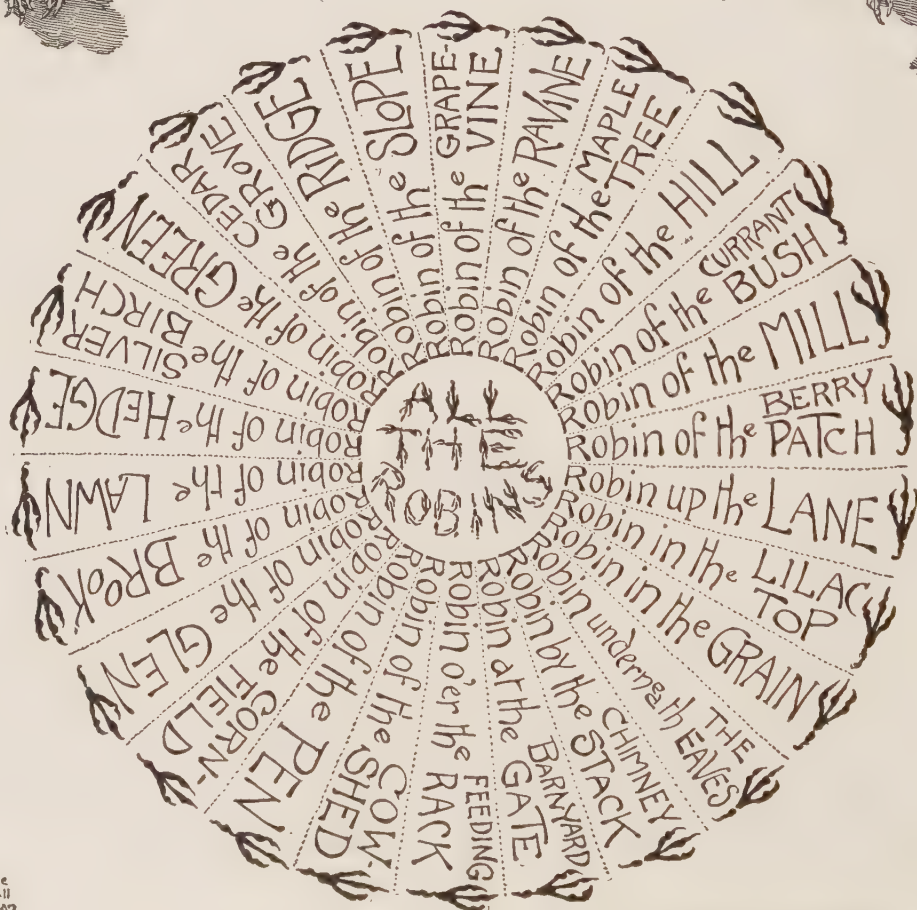 ALL
THE
ROBINS
Robin of the GRAPE-
VINE
Robin of the RAVINE
Robin of the MAPLE
TREE
Robin of the HILL
Robin of the CURRANT
BUSH
Robin of the MILL
Robin of the BERRY
PATCH
Robin up the LANE
Robin in the LILAC
TOP
Robin in the GRAIN
Robin underneath THE
EAVES
Robin by the CHIMNEY
STACK
Robin at the BARNYARD
GATE
Robin o'er the FEEDING
RACK
Robin of the COW-
SHED
Robin of the PEN
Robin of the CORN-
FIELD
Robin of the GLEN
Robin of the BROOK
Robin of the LAWN
Robin of the HEDGE
Robin of the SILVER
BIRCH
Robin of the GREEN
Robin of the CEDAR
GROVE
Robin of the RIDGE
Robin of the SLOPE